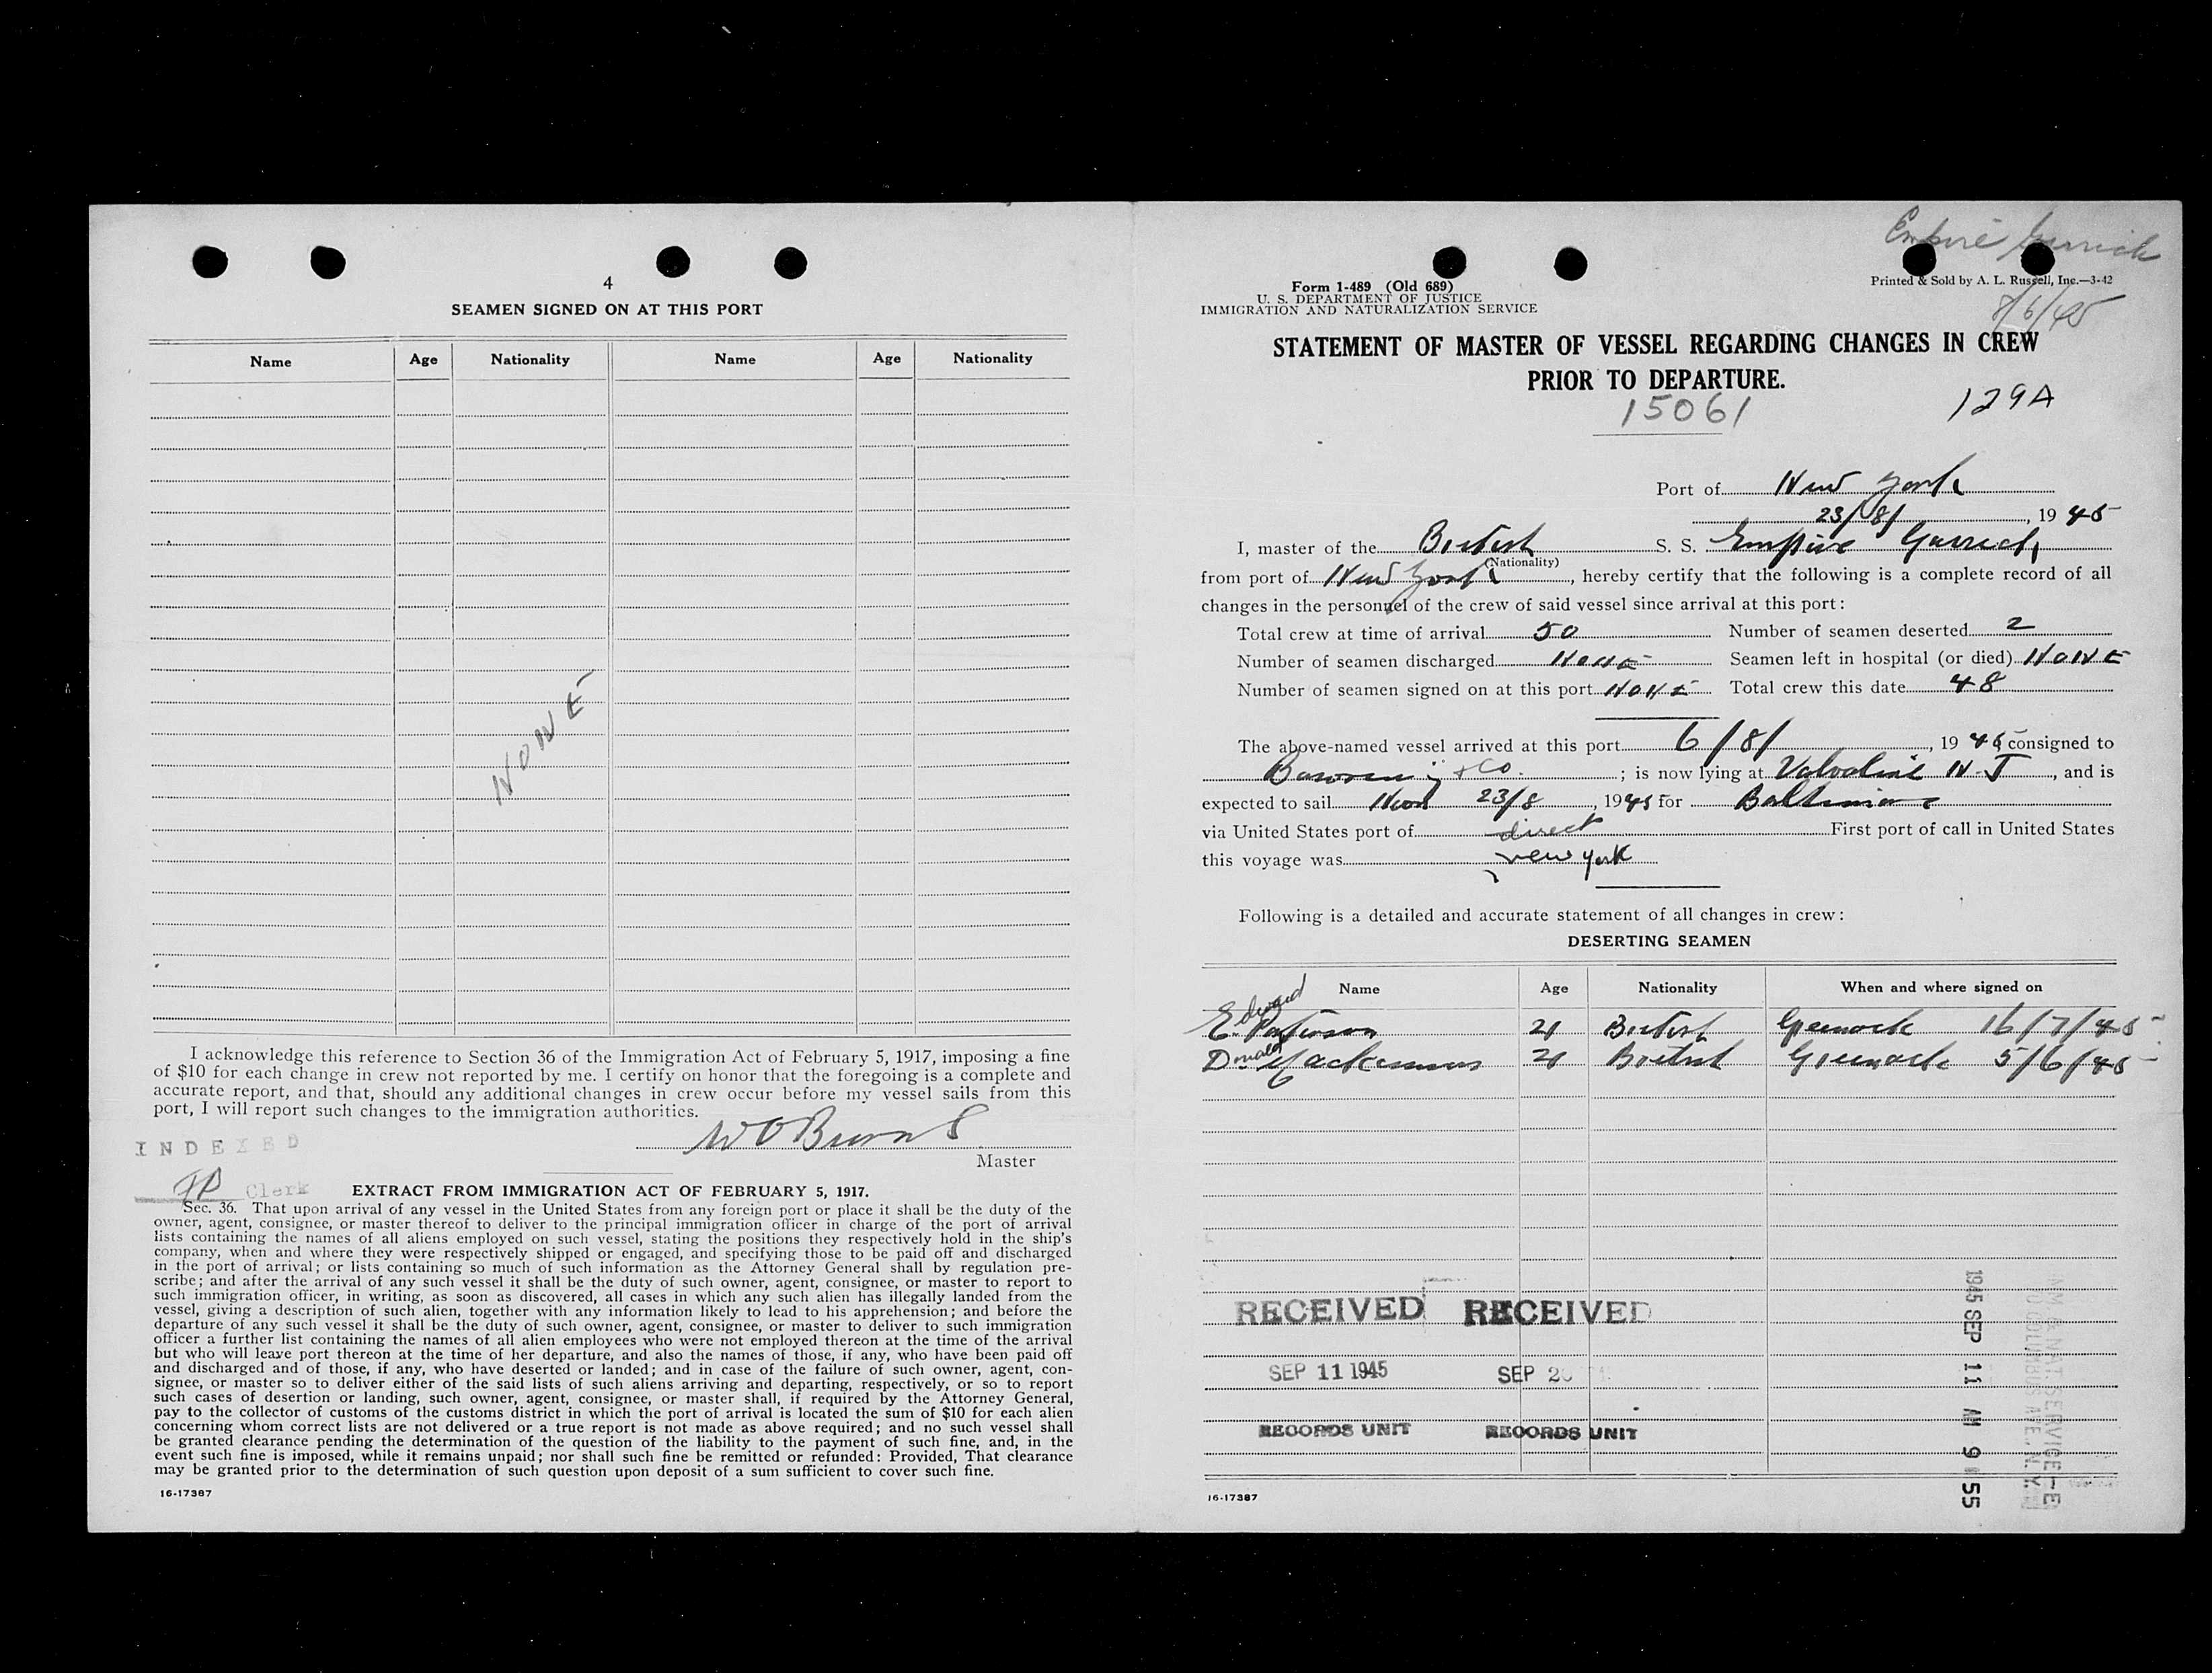 4
SEAMEN SIGNED ON AT THIS PORT
Name Age Nationality Name Age Nationality
NONE
I acknowledge this reference to Section 36 of the Immigration Act of February 5, 1917, imposing a fine
of $10 for each change in crew not reported by me. I certify on honor that the foregoing is a complete and
accurate report, and that, should any additional changes in crew occur before my vessel sails from this
port, I will report such changes to the immigration authorities.
INDEXED
Master
Clerk
EXTRACT FROM IMMIGRATION ACT OF FEBRUARY 5, 1917.
Sec. 36. That upon arrival of any vessel in the United States from any foreign port or place it shall be the duty of the
owner, agent, consignee, or master thereof to deliver to the principal immigration officer in charge of the port of arrival
lists containing the names of all aliens employed on such vessel, stating the positions they respectively hold in the ship's
company, when and where they were respectively shipped or engaged, and specifying those to be paid off and discharged
in the port of arrival; or lists containing so much of such information as the Attorney General shall by regulation pre-
scribe; and after the arrival of any such vessel it shall be the duty of such owner, agent, consignee, or master to report to
such immigration officer, in writing, as soon as discovered, all cases in which any such alien has illegally landed from the
vessel, giving a description of such alien, together with any information likely to lead to his apprehension; and before the
departure of any such vessel it shall be the duty of such owner, agent, consignee, or master to deliver to such immigration
officer a further list containing the names of all alien employees who were not employed thereon at the time of the arrival
but who will leave port thereon at the time of her departure, and also the names of those, if any, who have been paid off
and discharged and of those, if any, who have deserted or landed; and in case of the failure of such owner, agent, con-
signee, or master so to deliver either of the said lists of such aliens arriving and departing, respectively, or so to report
such cases of desertion or landing, such owner, agent, consignee, or master shall, if required by the Attorney General,
pay to the collector of customs of the customs district in which the port of arrival is located the sum of $10 for each alien
concerning whom correct lists are not delivered or a true report is not made as above required; and no such vessel shall
be granted clearance pending the determination of the question of the liability to the payment of such fine, and, in the
event such fine is imposed, while it remains unpaid; nor shall such fine be remitted or refunded: Provided, That clearance
may be granted prior to the determination of such question upon deposit of a sum sufficient to cover such fine.
16-17387
Empire Garrick
Form 1-489 (Old 689)
U. S. DEPARTMENT OF JUSTICE
IMMIGRATION AND NATURALIZATION SERVICE
Printed & Sold by A. L. Russell, Inc.—3-42
8/6/45
STATEMENT OF MASTER OF VESSEL REGARDING CHANGES IN CREW
PRIOR TO DEPARTURE.
15061 129A
Port of New York
23/8/, 1945
I, master of the British S. S. Empire Garrick
(Nationality)
from port of New York, hereby certify that the following is a complete record of all
changes in the personnel of the crew of said vessel since arrival at this port:
Total crew at time of arrival 50 Number of seamen deserted 2
Number of seamen discharged NONE Seamen left in hospital (or died) NONE
Number of seamen signed on at this port NONE Total crew this date 48
The above-named vessel arrived at this port 6/8/, 1945 consigned to
& Co.; is now lying at N.J, and is
expected to sail Noon 23/8, 1945 for Baltimore
via United States port of direct First port of call in United States
this voyage was new york
Following is a detailed and accurate statement of all changes in crew:
DESERTING SEAMEN
Name Age Nationality When and where signed on
Edward
E. 21 British Greenock 16/7/45
Donald 21 British Greenock 5/6/45
RECEIVED RECEIVED
SEP 11 1945 SEP
RECORDS UNIT RECORDS UNIT
1945 SEP 11 AM 9 55
IMM. & NAT. SERVICE
COLUMBUS AVE., N.Y.
16-17387